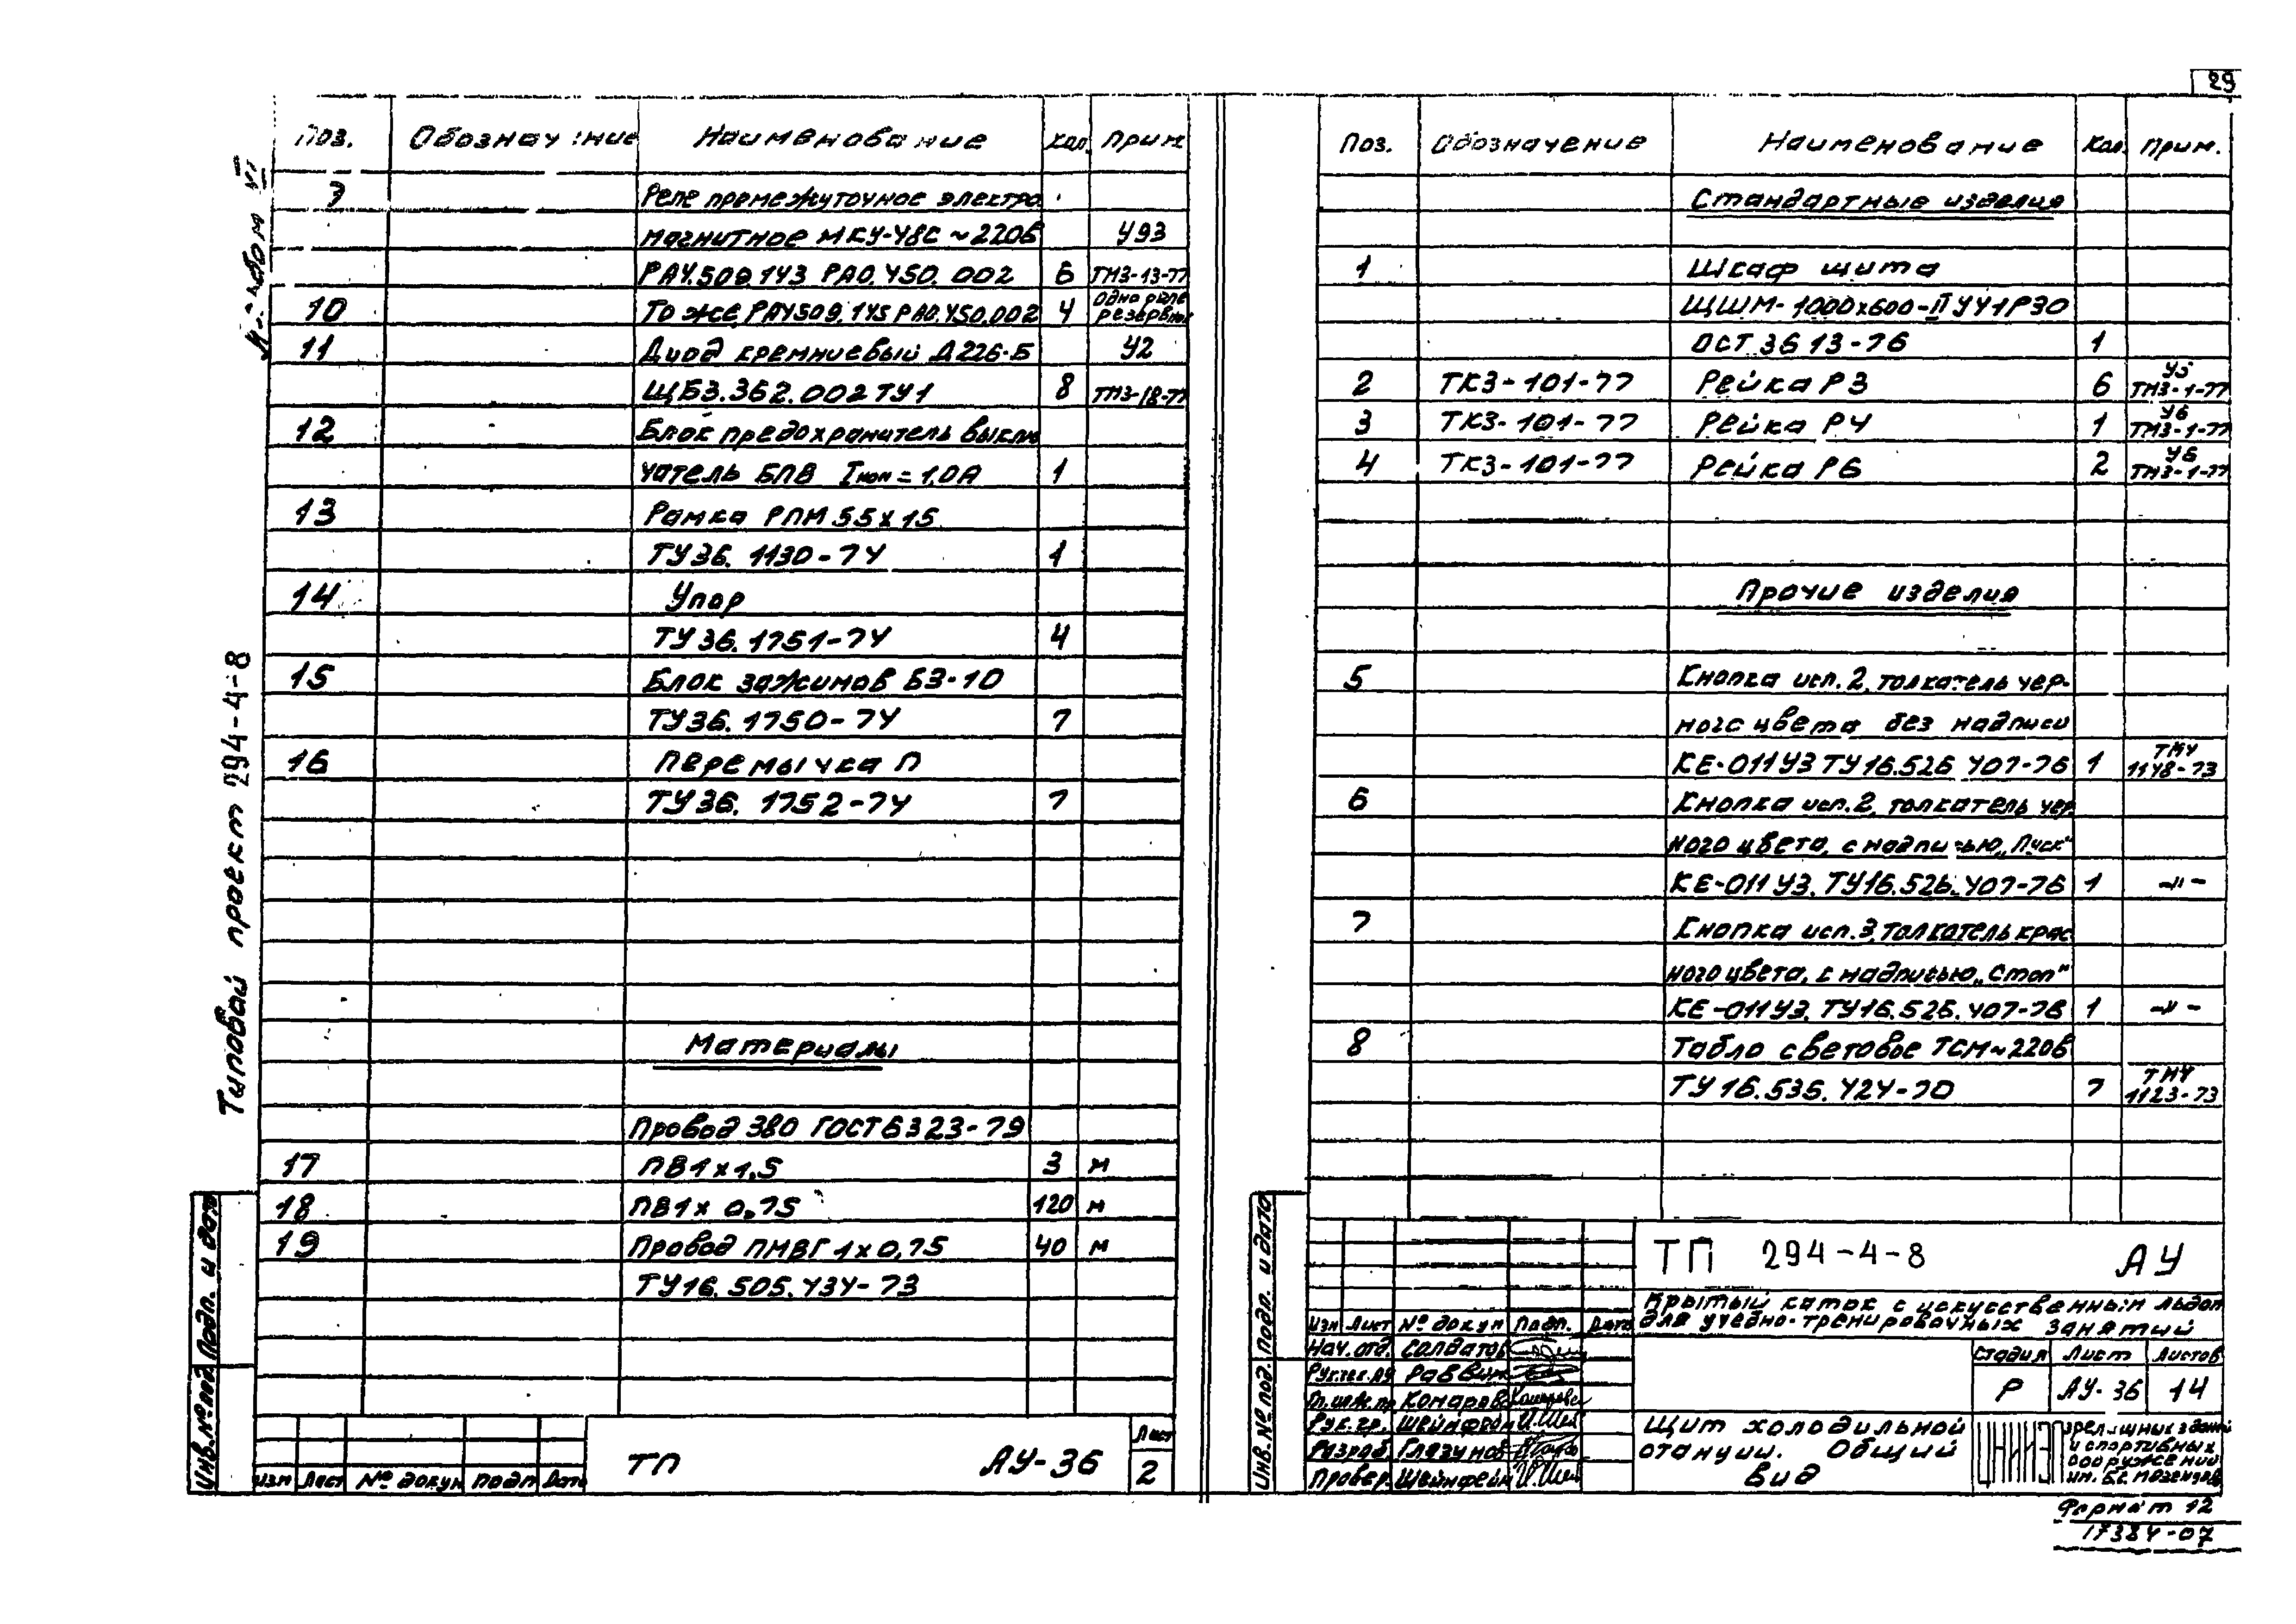 29
Типовой проект 294-4-8
Поз. Наименование Кол. Прим
Реле промежуточное электро
магнитное МКУ-48С ~220в У93
РА4.509.143 РА0.450.002 6 ТМ3-13-77
10 То же РА4509.145 РА0.450.002 4 Одно реле
11 Диод кремниевый Д226-Б У2
ЩБ3.362.002 ТУ1 8 ТМ3-18-77
12 Блок предохранитель выклю
чатель БПВ Iном = 1.0А 1
13 Рамка РПМ 55х15
ТУ36.1130-74 1
14 Упор
ТУ36.1751-74 4
15 Блок зажимов БЗ-10
ТУ36.1750-74 7
16 Перемычка П
ТУ36.1752-74 7
Материалы
Провод 380 ГОСТ 6323-79
17 ПВ1х1,5 3 м
18 ПВ1х0,75 120 м
19 Провод ПМВГ 1х0,75 40 м
ТУ16.505.434-73
Подп. и дата
Инв. № подл
Изм Лист № докум подп Дата
ТП АУ-36
Лист
2
Поз. Обозначение Наименование Кол. Прим.
Стандартные изделия
1 Шкаф щита
ЩШМ-1000х600-П УУ1Р30
ОСТ 36 13-76 1
2 ТК3-101-77 Рейка Р3 6 У5 ТМ3-1-77
3 ТК3-101-77 Рейка Р4 1 У6 ТМ3-1-77
4 ТК3-101-77 Рейка Р6 2 У6 ТМ3-1-77
Прочие изделия
5 Кнопка исп.2, толкатель чер-
ного цвета без надписи
КЕ-011У3 ТУ16.526 407-76 1 ТМ4 1148-73
6 Кнопка исп.2, толкатель чер
ного цвета, с надписью „Пуск"
КЕ-011У3. ТУ16.526.407-76 1 -"-
7 Кнопка исп.3, толкатель крас
ного цвета, с надписью „Стоп"
КЕ-011У3. ТУ16.526.407-76 1 -"-
8 Табло световое ТСМ ~220в
ТУ16.535.424-70 7 ТМ4 1123-73
Подп. и дата
Инв. № подл.
ТП 294-4-8 АУ
Крытый каток с искусственным льдом
для учебно-тренировочных занятий
Изм Лист № докум Подп. Дата
Нач. отд. Солдатов
Рук.сек.АУ Раввин
Гл.инж.пр Комарова
Рук. гр. Шейнфейн
Разраб. Глязунов
Провер. Шейнфейн
Стадия Лист Листов
Р АУ-36 14
Щит холодильной
станции. Общий
вид
ЦНИИЭП зрелищных зданий
и спортивных
сооружений
им. Б.С. Мезенцева
Формат 12
17384-07